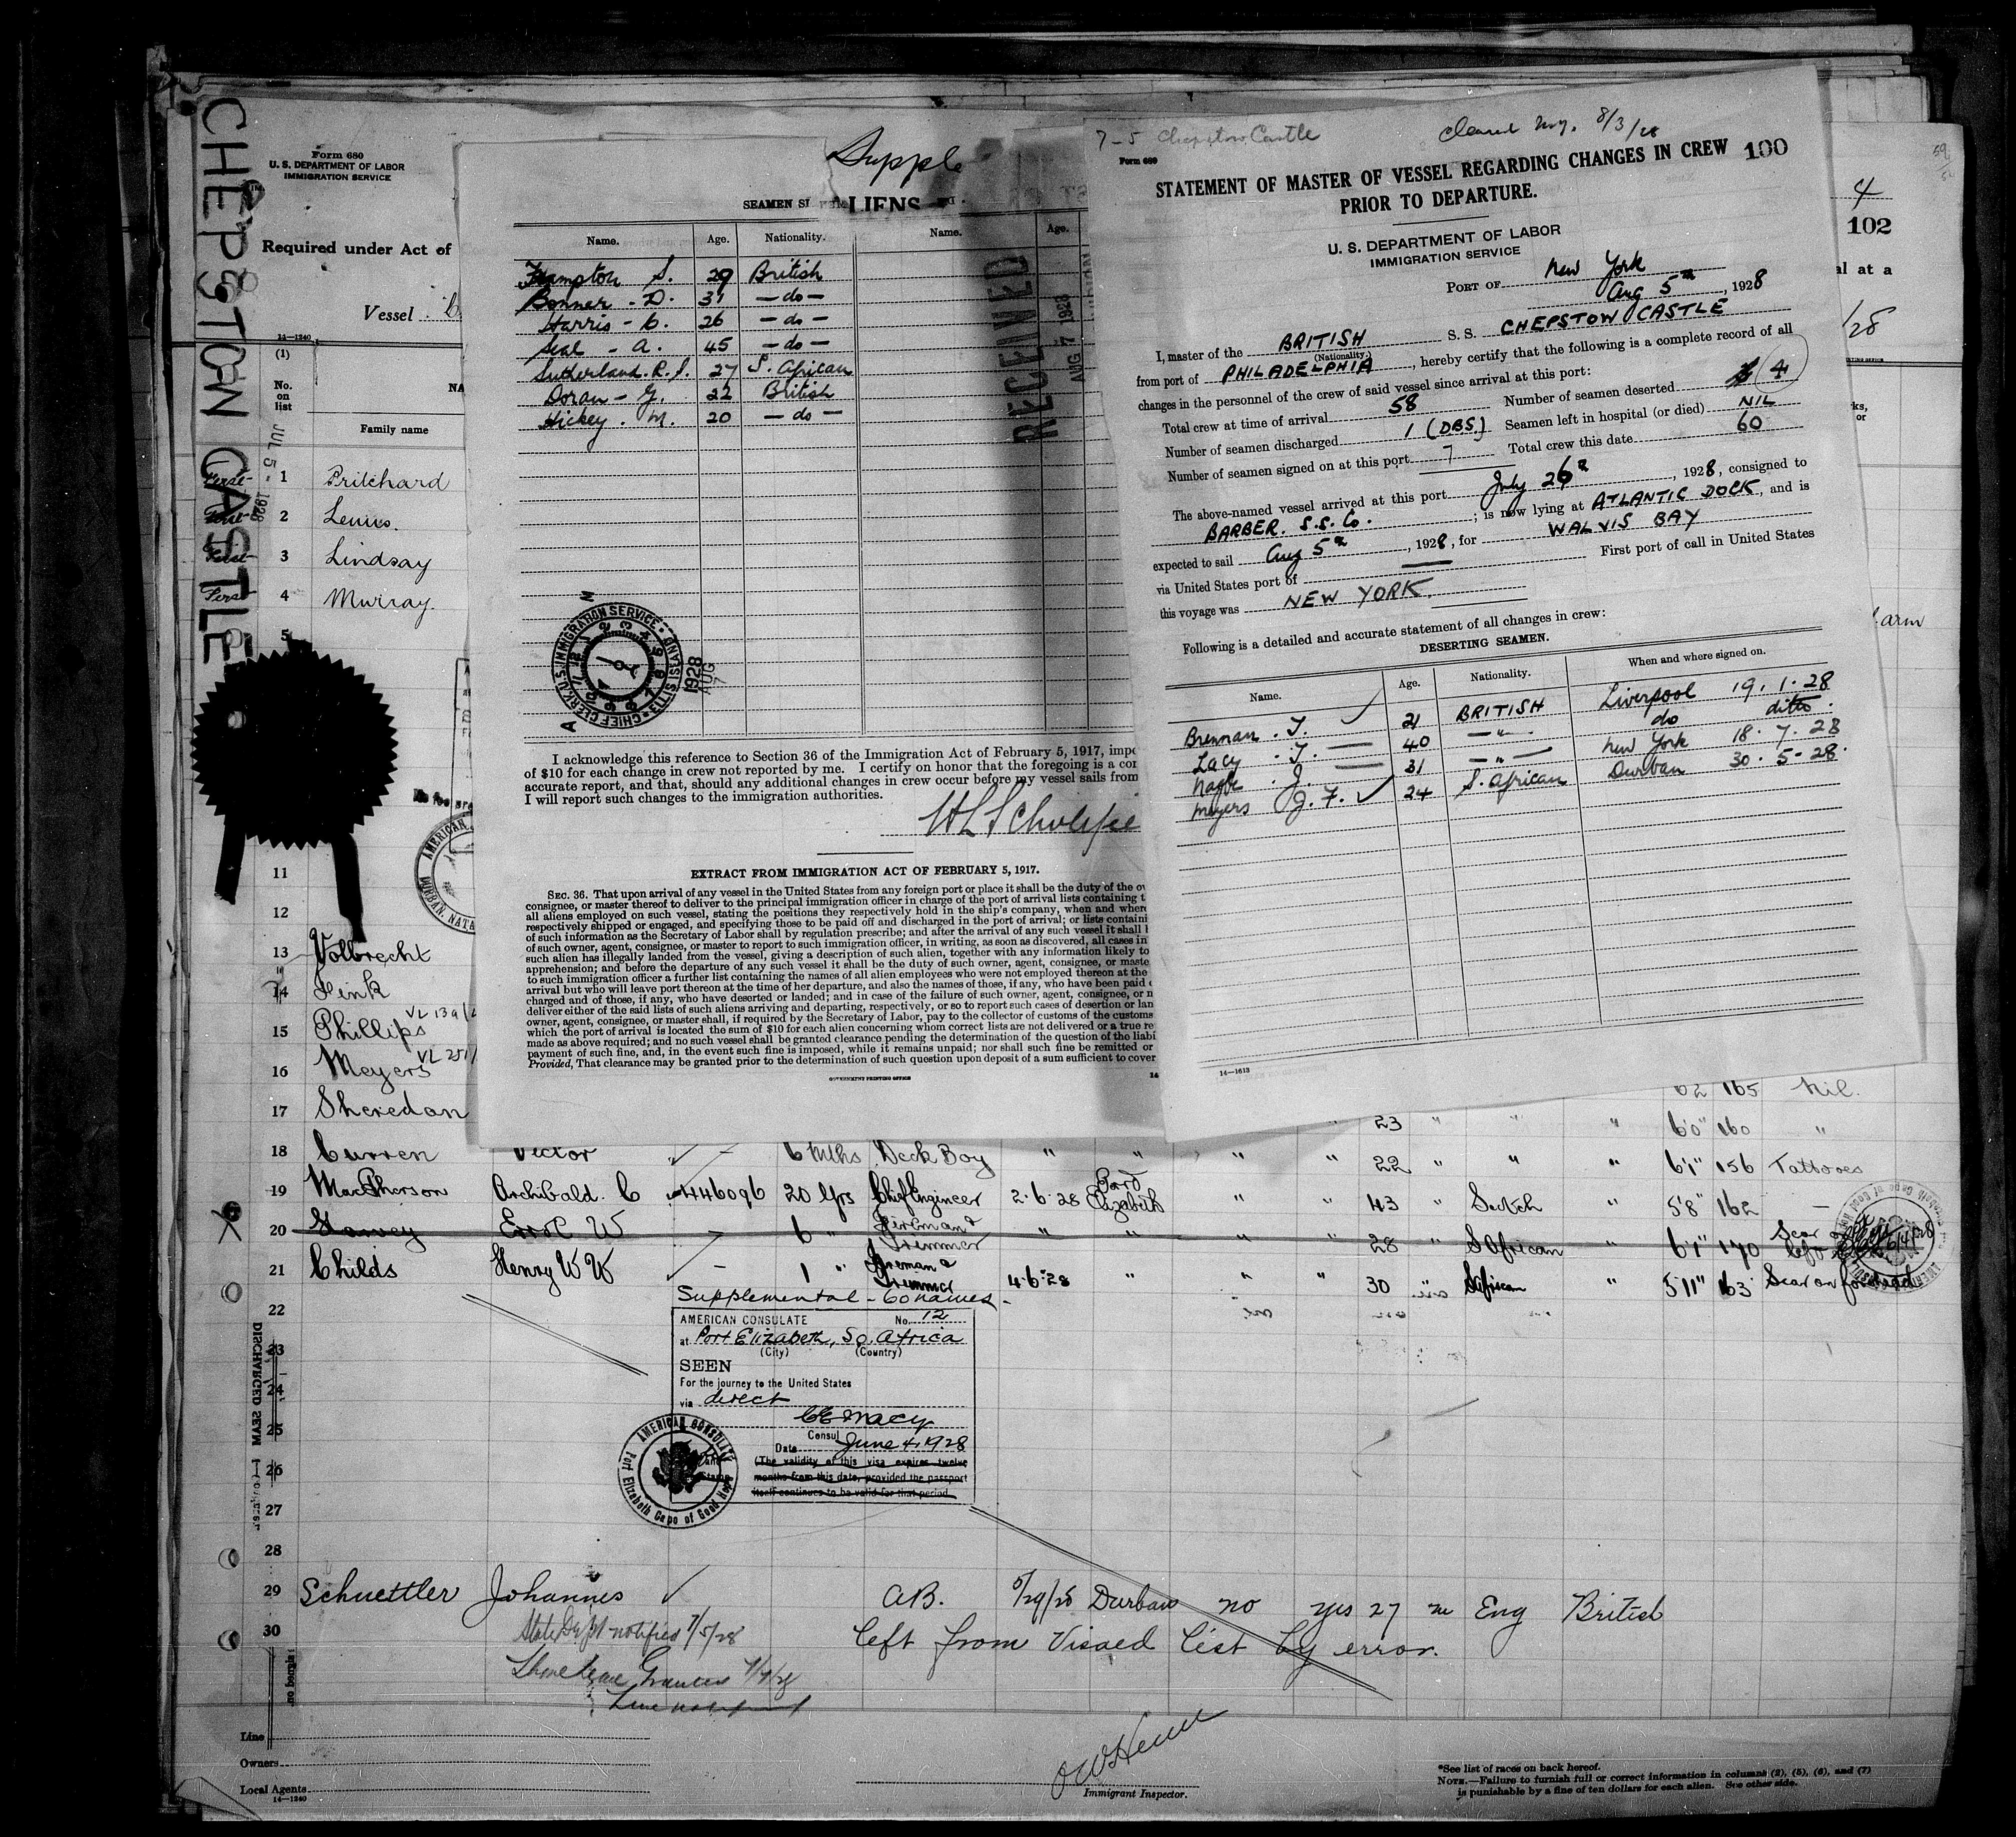 CHEPSTOW CASTLE
Form 680
U. S. DEPARTMENT OF LABOR
IMMIGRATION SERVICE
Required under Act of
Vessel
14—1240
(1)
No.
on
list
NA
Family name
JUL 5 - 1928
1 Pritchard
2 Lewis.
3 Lindsay
4 Murray.
5
11
12
13 Volbrecht
14 Fink
15 Phillips
16 Meyers
17 Sheredan
Supple
SEAMEN SI
ALIENS
Name. Age. Nationality. Name. Age.
Frampton S. 29 British
Bonner - D. 31 — do —
Harris - C. 26 — do —
Seal - A. 45 — do —
Sutherland. R. S. 27 S. African
Doran - G. 22 British
Hickey . M. 20 — do —
RECEIVED
AUG 7 1928
CHIEF CLERK U.S. IMMIGRATION SERVICE ELLIS ISLAND
1928 AUG 7
I acknowledge this reference to Section 36 of the Immigration Act of February 5, 1917, impo
of $10 for each change in crew not reported by me. I certify on honor that the foregoing is a cor
accurate report, and that, should any additional changes in crew occur before my vessel sails from
I will report such changes to the immigration authorities.
EXTRACT FROM IMMIGRATION ACT OF FEBRUARY 5, 1917.
SEC. 36. That upon arrival of any vessel in the United States from any foreign port or place it shall be the duty of the ow
consignee, or master thereof to deliver to the principal immigration officer in charge of the port of arrival lists containing t
all aliens employed on such vessel, stating the positions they respectively hold in the ship's company, when and where
respectively shipped or engaged, and specifying those to be paid off and discharged in the port of arrival; or lists containi
of such information as the Secretary of Labor shall by regulation prescribe; and after the arrival of any such vessel it shall b
of such owner, agent, consignee, or master to report to such immigration officer, in writing, as soon as discovered, all cases in
such alien has illegally landed from the vessel, giving a description of such alien, together with any information likely to
apprehension; and before the departure of any such vessel it shall be the duty of such owner, agent, consignee, or maste
to such immigration officer a further list containing the names of all alien employees who were not employed thereon at the
arrival but who will leave port thereon at the time of her departure, and also the names of those, if any, who have been paid o
charged and of those, if any, who have deserted or landed; and in case of the failure of such owner, agent, consignee, or n
deliver either of the said lists of such aliens arriving and departing, respectively, or so to report such cases of desertion or lan
owner, agent, consignee, or master shall, if required by the Secretary of Labor, pay to the collector of customs of the customs
which the port of arrival is located the sum of $10 for each alien concerning whom correct lists are not delivered or a true re
made as above required; and no such vessel shall be granted clearance pending the determination of the question of the liabi
payment of such fine, and, in the event such fine is imposed, while it remains unpaid; nor shall such fine be remitted or
Provided, That clearance may be granted prior to the determination of such question upon deposit of a sum sufficient to cover
GOVERNMENT PRINTING OFFICE
7-5 Chepstow Castle
8/3/28
Form 689
STATEMENT OF MASTER OF VESSEL REGARDING CHANGES IN CREW 100
PRIOR TO DEPARTURE.
U. S. DEPARTMENT OF LABOR
IMMIGRATION SERVICE
PORT OF New York
Aug 5th, 1928
I, master of the BRITISH S. S. CHEPSTOW CASTLE
(Nationality.)
from port of PHILADELPHIA, hereby certify that the following is a complete record of all
changes in the personnel of the crew of said vessel since arrival at this port:
Total crew at time of arrival 58 Number of seamen deserted 4
Number of seamen discharged 1 (DBS.) Seamen left in hospital (or died) NIL
Number of seamen signed on at this port 7 Total crew this date 60
The above-named vessel arrived at this port July 26th, 1928, consigned to
BARBER. S.S. Co.; is now lying at ATLANTIC DOCK, and is
expected to sail Aug 5th, 1928, for WALVIS BAY
via United States port of — First port of call in United States
this voyage was NEW YORK.
Following is a detailed and accurate statement of all changes in crew:
DESERTING SEAMEN.
Name. Age. Nationality. When and where signed on.
Brennan . T. 21 BRITISH Liverpool 19. 1. 28
Lacy . T. 40 — " — do ditto.
J. 31 — " — New York 18. 7. 28
Meyers J. F. 24 S. African Durban 30. 5-28.
14—1613
4
102
al at a
/28
arm
62 165 Nil.
23 " " " 6'0" 160 "
18 Curren Victor — 6 Mths Deck Boy " " " " 22 " " " 6'1" 156 Tattooes
19 MacPherson Archibald. C 446096 20 Yrs Chief Engineer 2.6.28 Port Elizabeth " " 43 " Scotch " 5'8" 162 —
20 Garvey Errol W — 6 " Fireman & Trimmer " " " " 28 " S African " 6'1" 170 Scar
21 Childs Henry W W — 1 " Fireman & Trimmer 4.6.28 " " " 30 " S African " 5'11" 163 Scar on forehead
22
Supplemental - 60 names -
AMERICAN CONSULATE No. 12
at Port Elizabeth, So. Africa
(City) (Country)
SEEN
For the journey to the United States
via direct
CE Macy
Consul
Date June 4, 1928
(The validity of this visa expires twelve
months from this date, provided the passport
itself continues to be valid for that period.
AMERICAN CONSULATE
Port Elizabeth Cape of Good Hope
23
24
25
26
27
28
DISCHARGED SEAM
29 Schuettler Johannes AB. 5/29/28 Durban no yes 27 m Eng British
30 State Dept notified 7/5/28 left from Visaed list by error.
Shore leave Granted
Line
Owners
Local Agents
14—1240
Immigrant Inspector.
*See list of races on back hereof.
NOTE.—Failure to furnish full or correct information in columns (2), (5), (6), and (7)
is punishable by a fine of ten dollars for each alien. See other side.